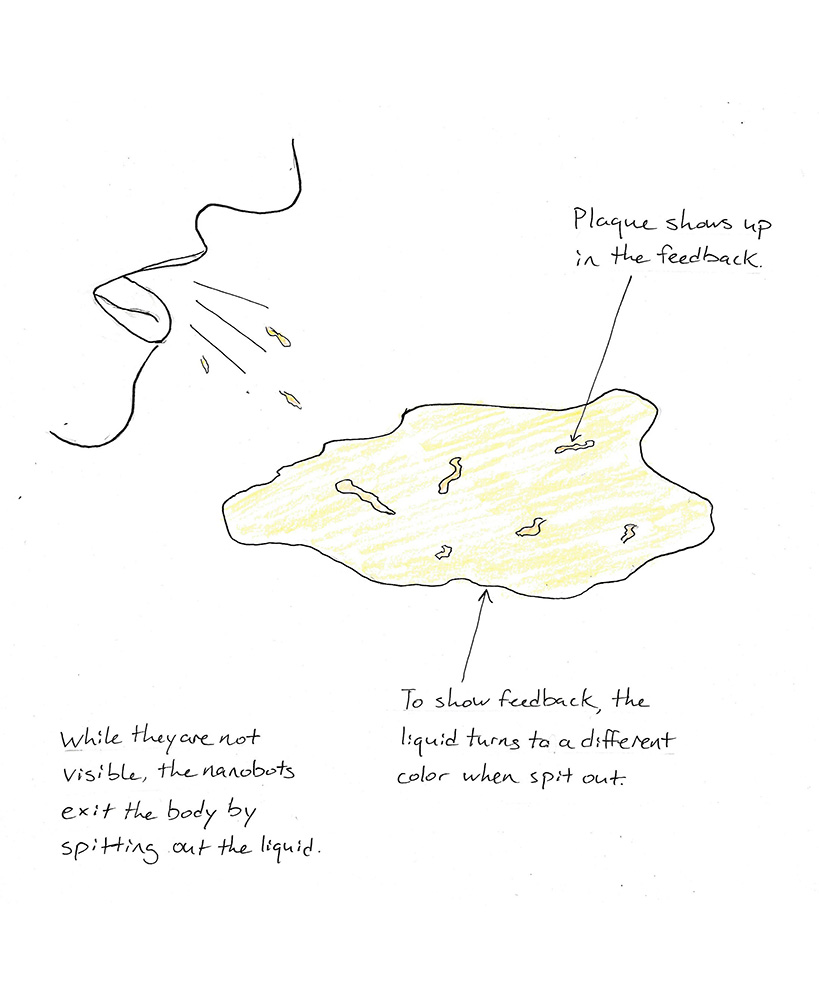 Plaque shows up
in the feedback.
To show feedback, the
liquid turns to a different
color when spit out.
While they are not
visible, the nanobots
exit the body by
spitting out the liquid.